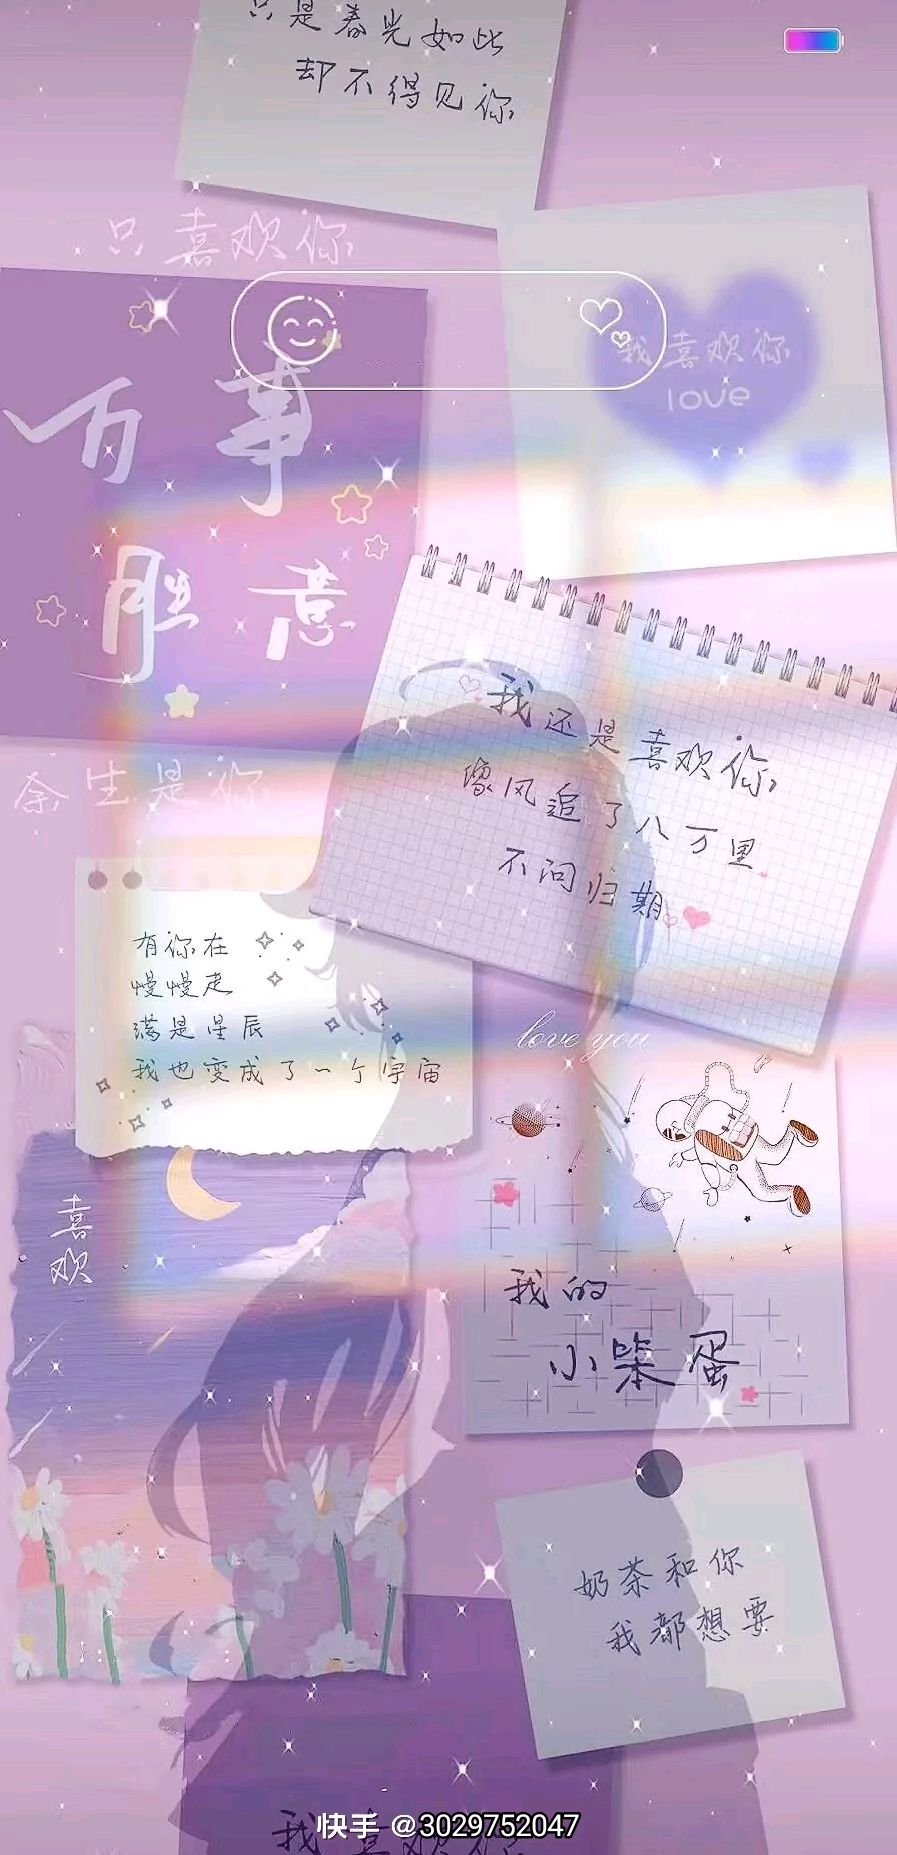 只是春光如此
却不得见你
只喜欢你
我喜欢你
love
万事
胜意
我还是喜欢你
像风追了八万里
不问归期
余生是你
有你在
慢慢走
满是星辰
我也变成了一个宇宙
love you
喜欢
我的
小笨蛋
奶茶和你
我都想要
我喜欢你
快手 @3029752047